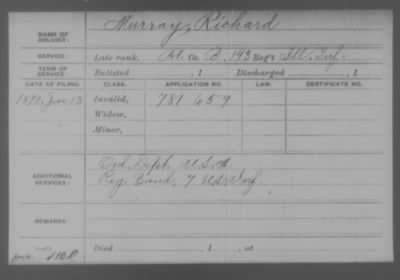 NAME OF SOLDIER: Murray, Richard
SERVICE: Late rank, Pvt. Co. B, 143 Reg't Ill. Inf.
TERM OF SERVICE: Enlisted , 1 Discharged , 1
DATE OF FILING. CLASS. APPLICATION NO. LAW. CERTIFICATE NO.
1890, June 13 Invalid, 781 659
Widow,
Minor,
ADDITIONAL SERVICES: Ord. Dept. U.S.A.
Reg. Band, 7 U.S. Inf.
REMARKS:
Died , 1 , at